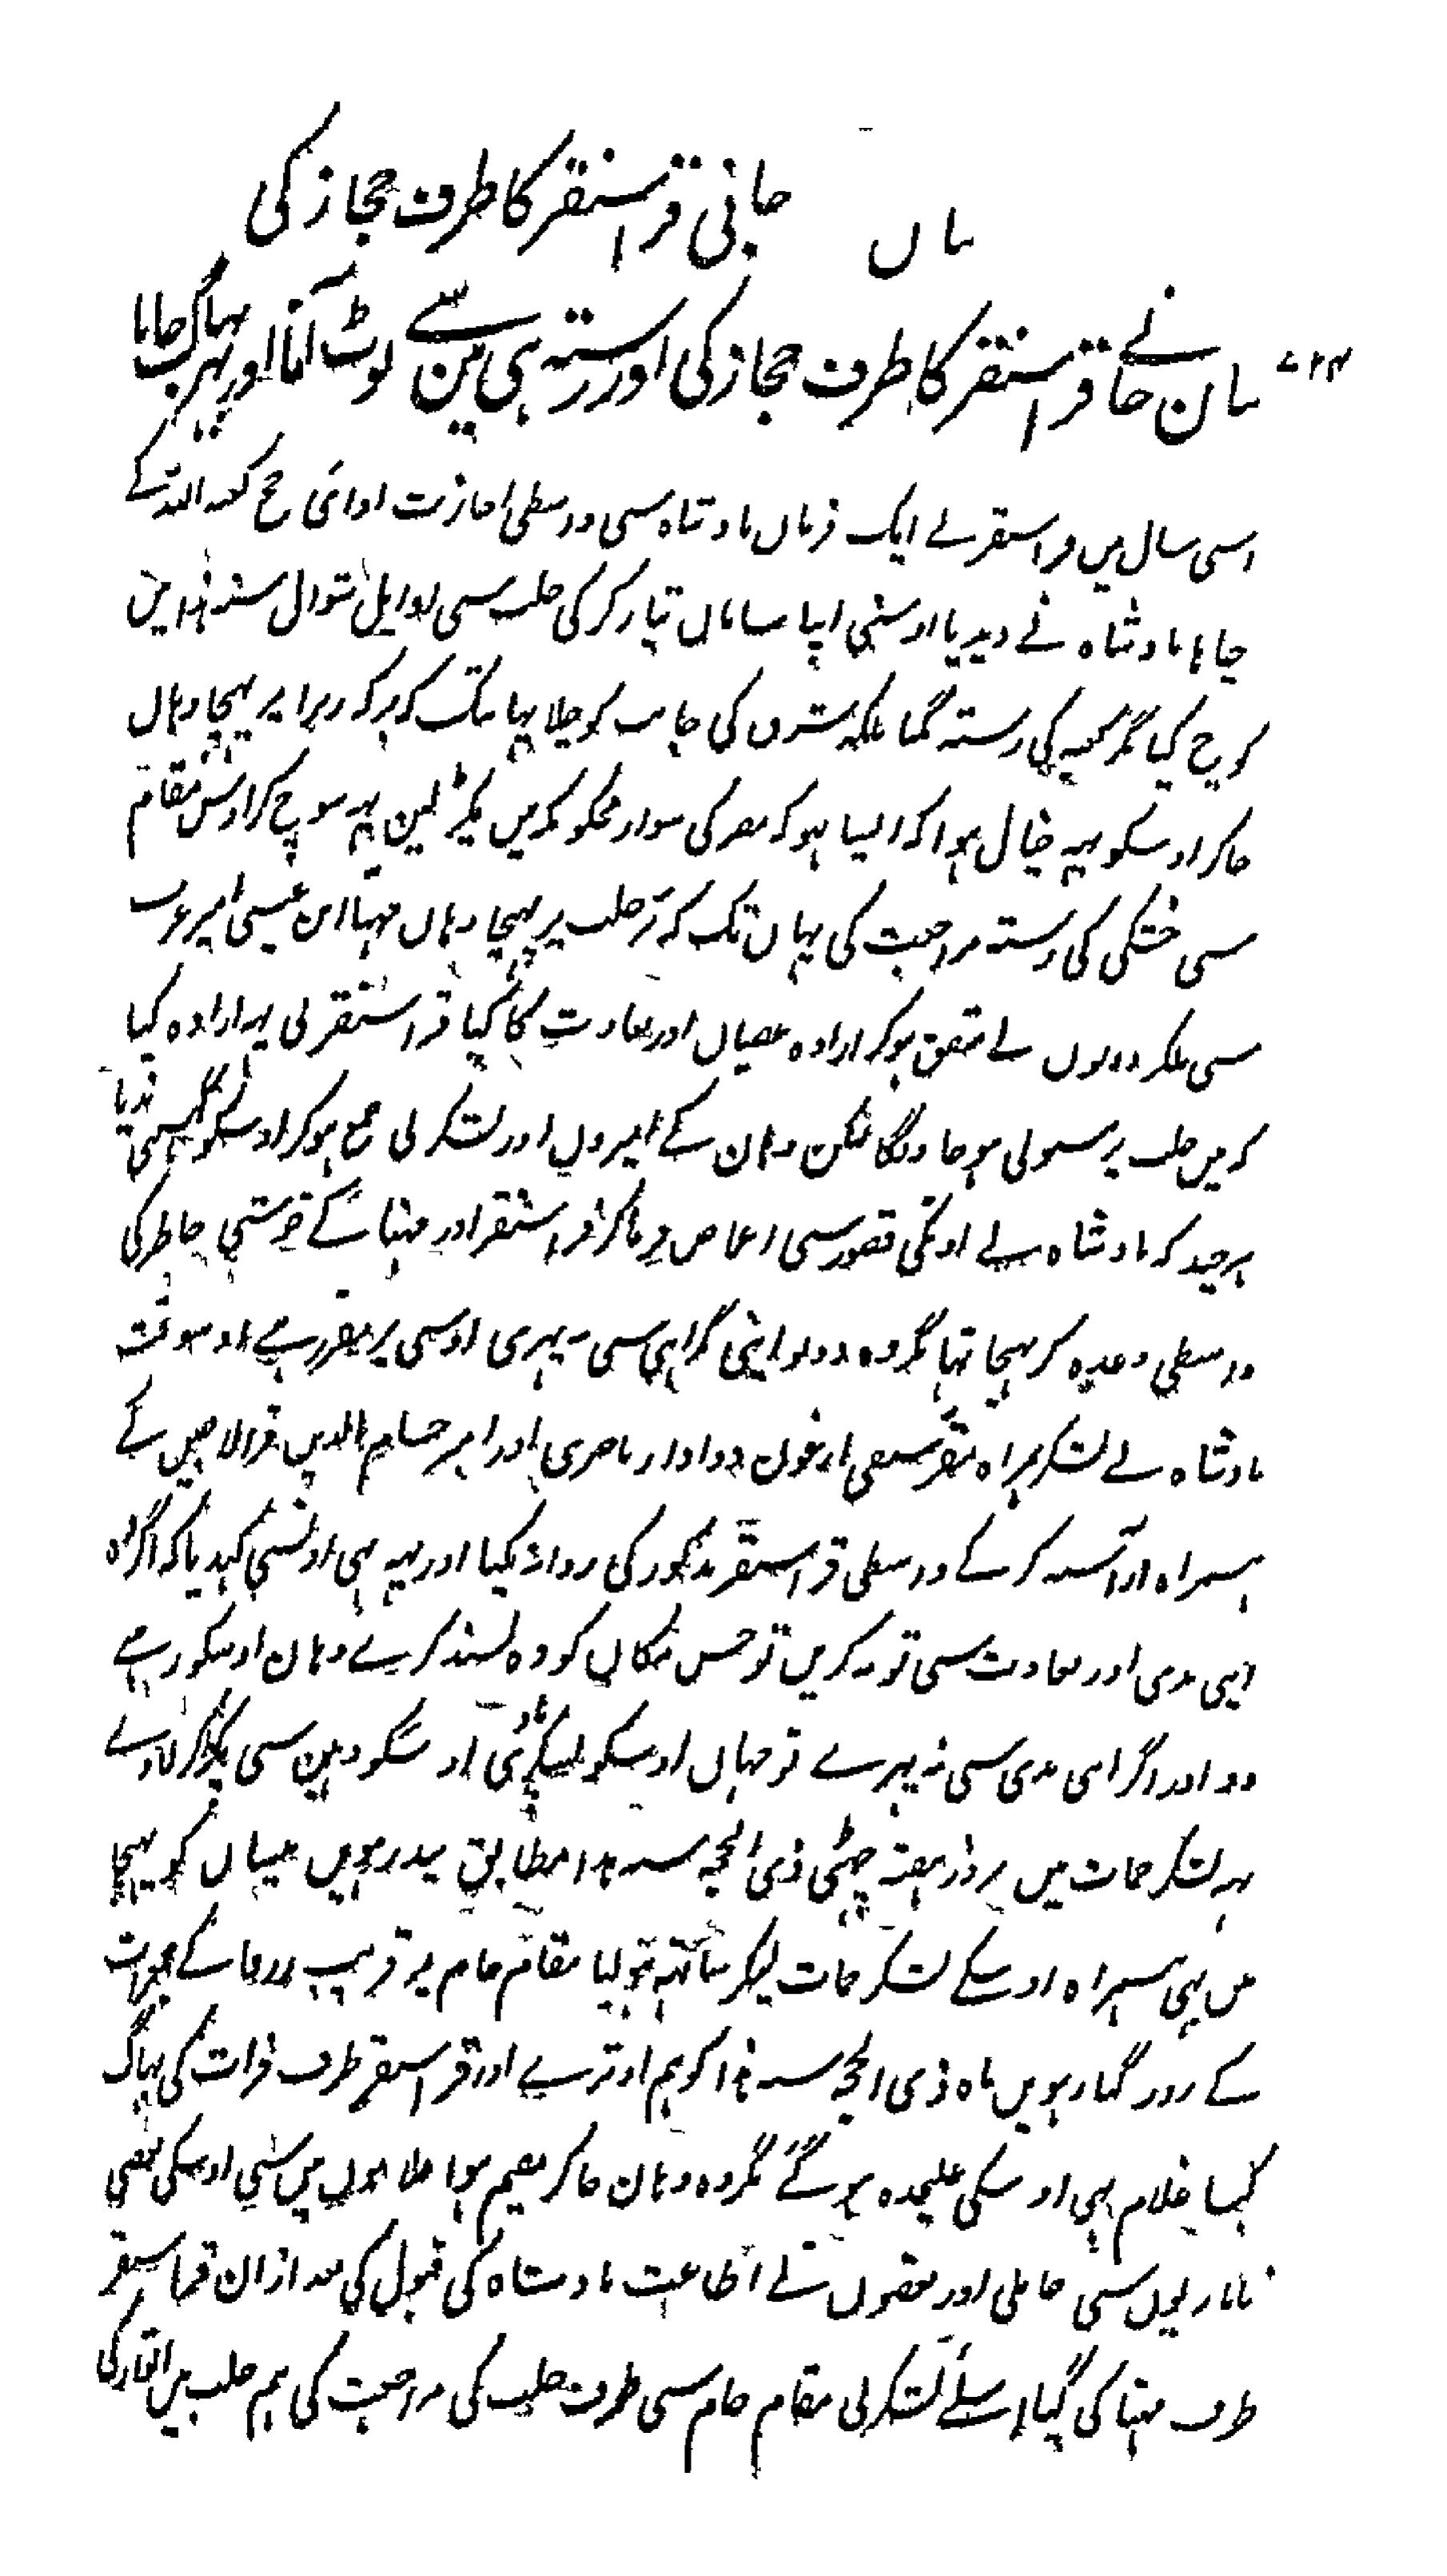 بیان جانی قراسنقر کا طرف حجاز کی
۷۳۴ بیان جانے قراسنقر کا طرف حجاز کی اور رستہ ہی مین سے لوٹ آنا اور پہر بہاگ جانا
اسی سال میں قراسنقر نے ایک فرمان بادشاہ سی واسطی اجازت ادائی حج کعبہ اللہ کے
چاہا بادشاہ نے دیدیا اوسنی اپنا سامان تیار کر کی حلب سی اوایل شوال سنہ ہذا مین
کوچ کیا مگر سیدہی رستہ گیا بلکہ کی جانب کو چلا یہانتک کہ برکہ زیزا پر پہنچا وہان
جا کر اوسکو یہہ خیال ہوا کہ ایسا ہو کہ مصر کی سوار مجکو مکہ میں پکڑ لین یہہ سوچ کر اوس مقام
سی خشکی کی رستہ مراجعت کی یہاں تک کہ بر حلب پر پہنچا وہاں مہنا ابن عیسی امیر عرب
سی ملکر دونوں نے متفق ہو کر ارادہ عصیان اور بغاوت کا کیا قراسنقر نی یہہ ارادہ کیا
کہ میں حلب پر مستولی ہو جاونگا لیکن وہان کے امیروں اور لشکر نی جمع ہو کر اوسکو گہسنی ندیا
ہر چند کہ بادشاہ نے اونکی قصور سی اغماض فرما کر قراسنقر اور مہنا کے خوشی خاطر کی
واسطی وعدہ کر بہیجا تہا مگر وہ دونو اپنی گمراہی سی نہ پہری اوسی پر مصر رہے اوسوقت
بادشاہ نے لشکر ہمراہ مقر سیفی ارغون دوادار ناصری اور امیر حسام الدین قرالاجین کے
ہمراہ آراستہ کر کے واسطی قراسنقر مذکور کی روانہ کیا اور یہہ بہی اونسی کہدیا کہ اگر وہ
اپنی بدی اور بغاوت سی توبہ کریں تو جس مکان کو وہ پسند کرے وہان اوسکو رہنے
دو اور اگر اس بدی سی نہ پہرے تو جہاں اوسکو پاو اوسکو وہین سی پکڑ کر لاوے
یہہ لشکر حمات میں بروز ہفتہ چہٹی ذی الحجہ سنہ ہذا مطابق پندرہویں نیسان کو پہنچا
میں بہی ہمراہ اوسکے لشکر حمات لیکر ساتہہ ہو لیا مقام حام پر قریب زرقا کے جمعرات
کے روز گیارہویں ماہ ذی الحجہ سنہ ہذا کو ہم اوترے اور قراسنقر طرف فرات کی بہاگ
گیا غلام بہی اوسکی علیحدہ ہو گئے مگر وہ وہان جا کر مقیم ہوا غلاموں میں سی اوسکی بعضی
تاتاریوں سی جاملی اور بعضوں نے اطاعت بادشاہ کی قبول کی بعد ازان قراسنقر
طرف مہنا کی گیا اسلئے لشکر نی مقام حام سی طرف حلب کی مراجعت کی ہم حلب میں